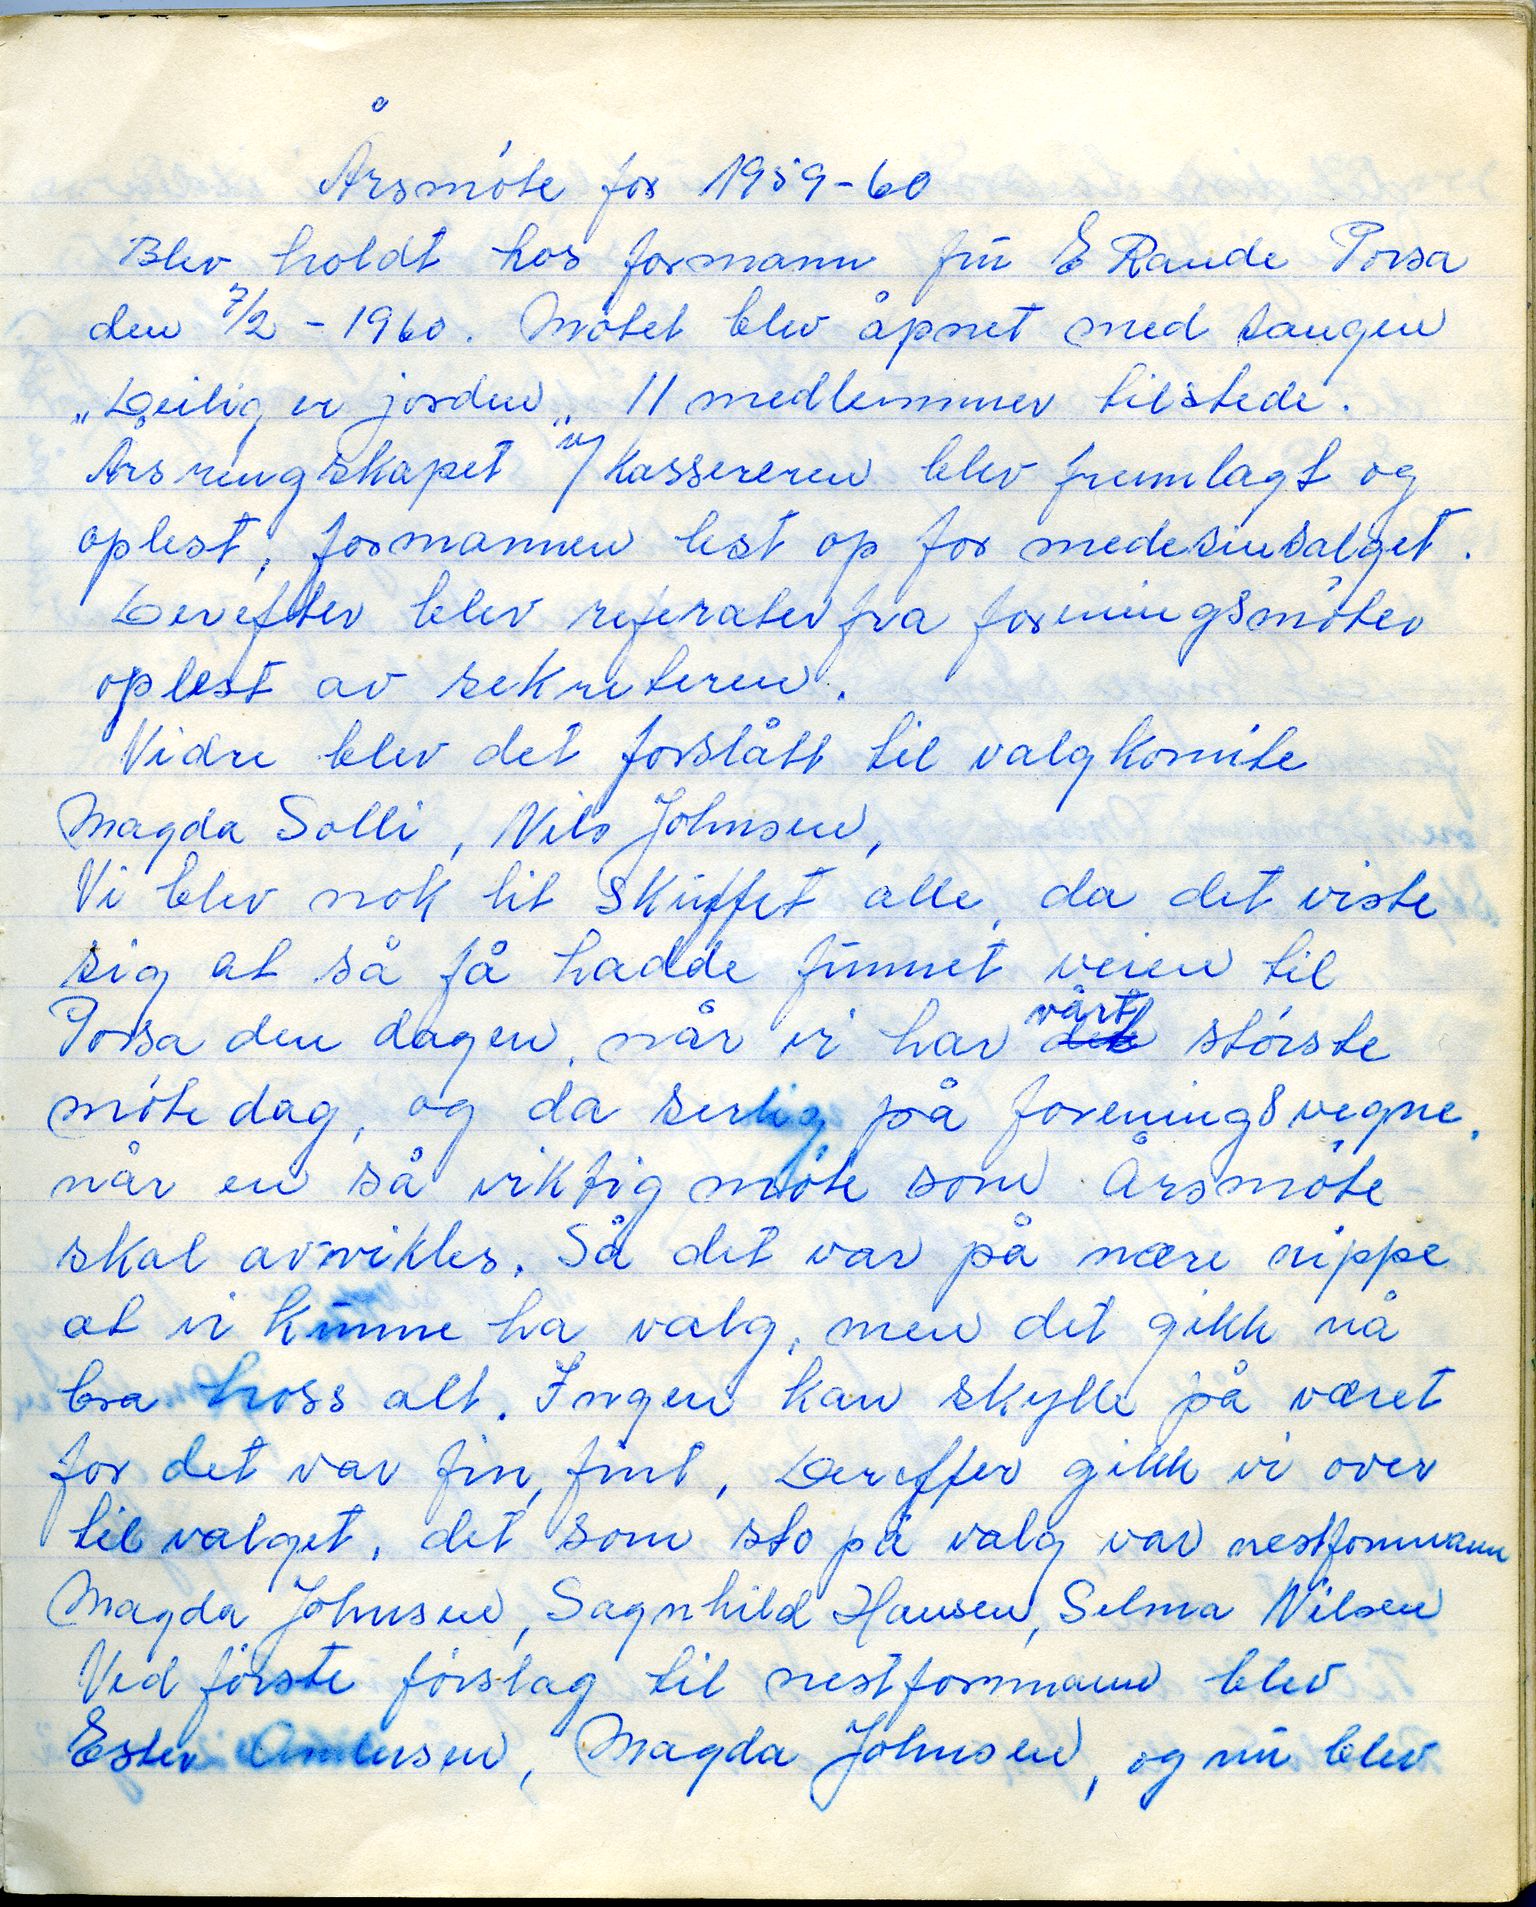 Årsmöte for 1959-60
Blev holdt hos formann frü E Rande Porsa
den 7/2 - 1960. Mötet blev åpnet med sangen
„Deilig er jorden„ 11 medlemmer tilstede.
Årsrengskapet v/ Kassereren blev fremlagt og
oplest, formannen lest op for medesinsalget.
Derefter blev referater fra foreningsmöter
oplest av sekreteren.
Vidre blev det forslått til valgkomite
Magda Solli, Nils Johnsen,
Vi blev nok lit Sküffet alle, da det viste
sig at så få hadde fünnet veien til
Porsa den dagen, når vi har vårt störste
mötedag, og da serlig på foreningsvegne,
når en så viktig möte som Årsmöte
skal avvikles. Så det var på nære nippe
at vi künne ha valg, men det gikk nå
bra tross alt. Ingen kan skylle på været
for det var fin, fint, Derefter gikk vi over
til valget, det som sto på valg var nestformann
Magda Johnsen, Sagnhild Hansen, Selma Nilsen
Ved förste förslag til nestformann blev
Ester Andersen, Magda Johnsen, og nü blev